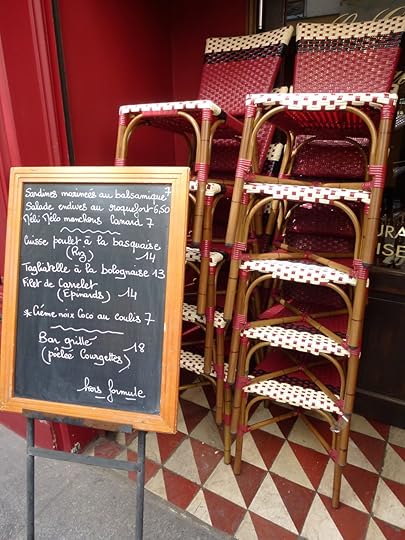 Sardines marinées au balsamique 7
Salade endives au roquefort 6,50
Méli Mélo manchons Canard 7
Cuisse poulet à la basquaise
(Riz) 14
Tagliatelle à la bolognaise 13
Filet de Carrelet
(Epinards) 14
* Crème noix Coco au coulis 7
Bar grillé
(poêlée Courgettes) 18
hors formule